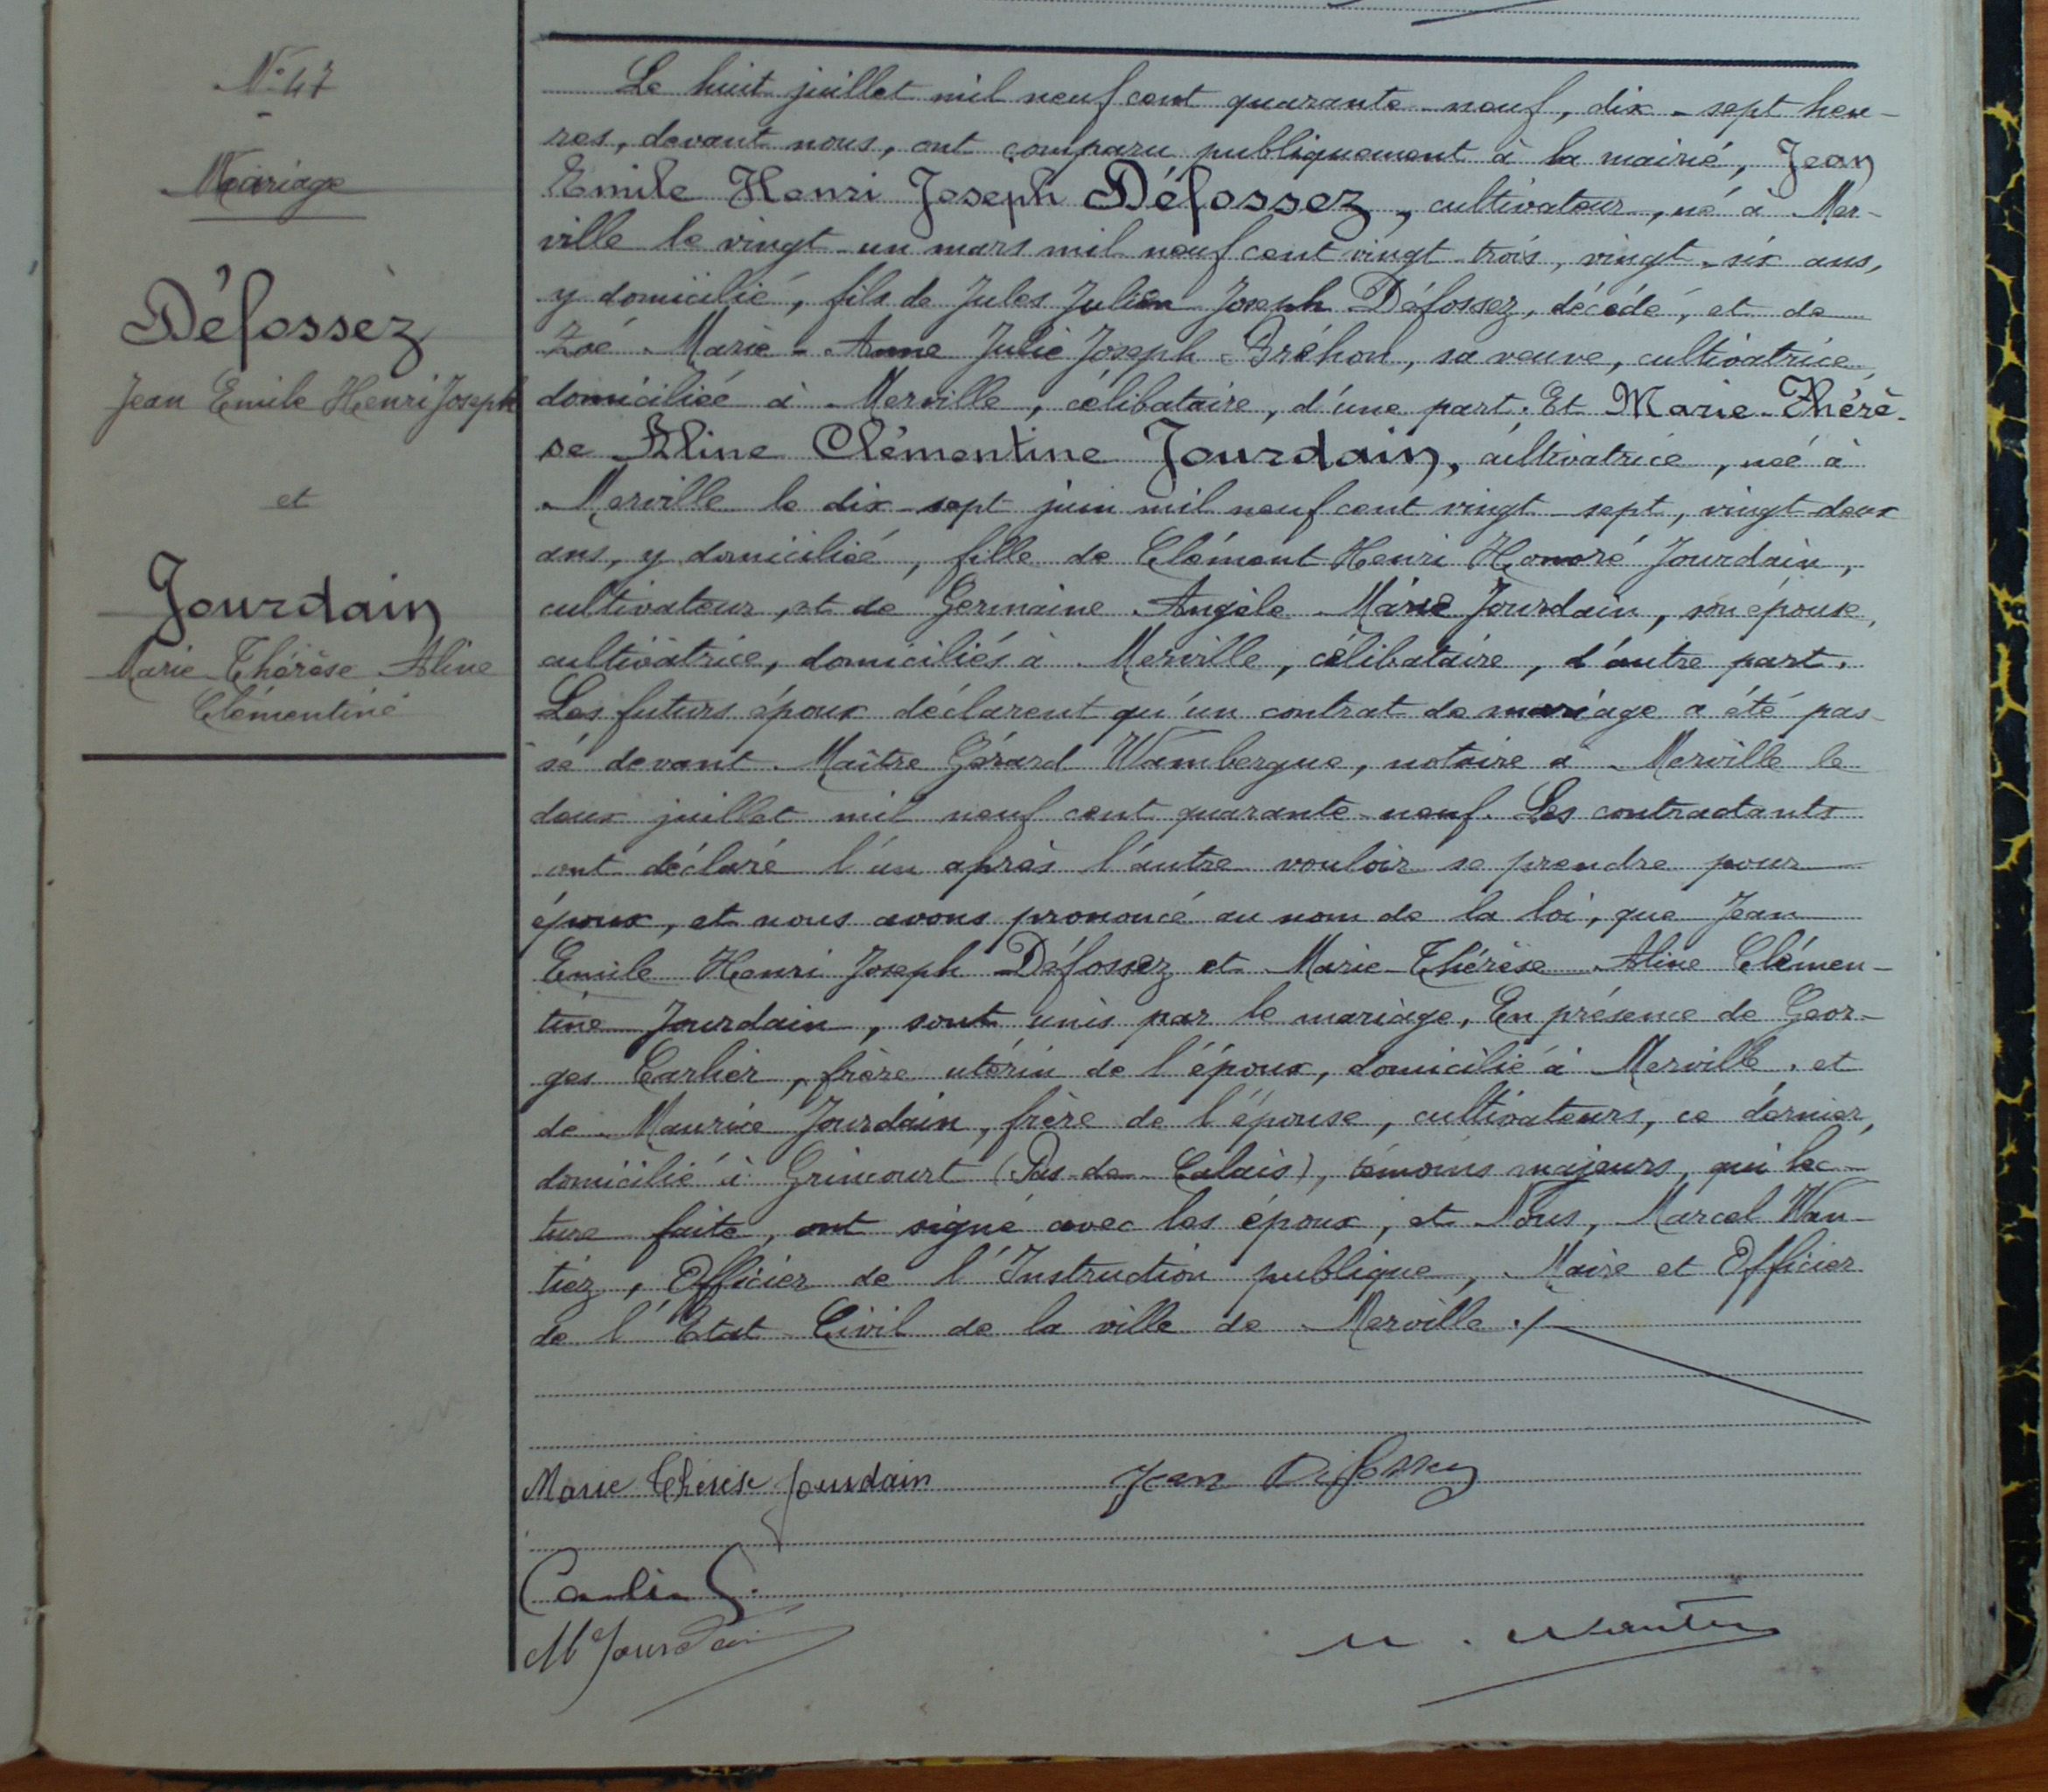 N° 47
-
Mariage
Défossez
Jean Emile Henri Joseph
et
Jourdain
Marie-Thérèse Aline
Clémentine
Le huit juillet mil neuf cent quarante-neuf, dix-sept heu-
res, devant nous, ont comparu publiquement à la mairie, Jean
Emile Henri Joseph Défossez, cultivateur, né à Mer-
ville le vingt-un mars mil neuf cent vingt-trois, vingt-six ans,
y domicilié, fils de Jules Julien Joseph Défossez, décédé, et de
Zoé Marie-Anne Julie Joseph Bréhon, sa veuve, cultivatrice,
domiciliée à Merville, célibataire, d'une part. Et Marie-Thérè-
se Aline Clémentine Jourdain, cultivatrice, née à
Merville le dix-sept juin mil neuf cent vingt-sept, vingt-deux
ans, y domiciliée, fille de Clément Henri Honoré Jourdain,
cultivateur, et de Germaine Angèle Marie Jourdain, son épouse,
cultivatrice, domiciliés à Merville, célibataire, d'autre part.
Les futurs époux déclarent qu'un contrat de mariage a été pas-
sé devant Maître Gérard Wambergue, notaire à Merville le
deux juillet mil neuf cent quarante-neuf. Les contractants
ont déclaré l'un après l'autre vouloir se prendre pour
époux, et nous avons prononcé au nom de la loi, que Jean
Emile Henri Joseph Défossez et Marie-Thérèse Aline Clémen-
tine Jourdain, sont unis par le mariage. En présence de Geor-
ges Carlier, frère utérin de l'époux, domicilié à Merville, et
de Maurice Jourdain, frère de l'épouse, cultivateurs, ce dernier,
domicilié à Grincourt (Pas-de-Calais), témoins majeurs, qui lec-
ture faite, ont signé avec les époux, et Nous, Marcel Wan-
tiez, Officier de l'Instruction publique, Maire et Officier
de l'Etat Civil de la ville de Merville ./
Marie Thérèse Jourdain
Jean Défossez
Carlier G.
M Jourdain
M. Wantiez